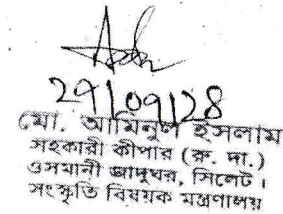 29/09/28
মো. আমিনুল ইসলাম
সহকারী কীপার (রু. দা.)
ওসমানী জাদুঘর, সিলেট।
সংস্কৃতি বিষয়ক মন্ত্রণালয়